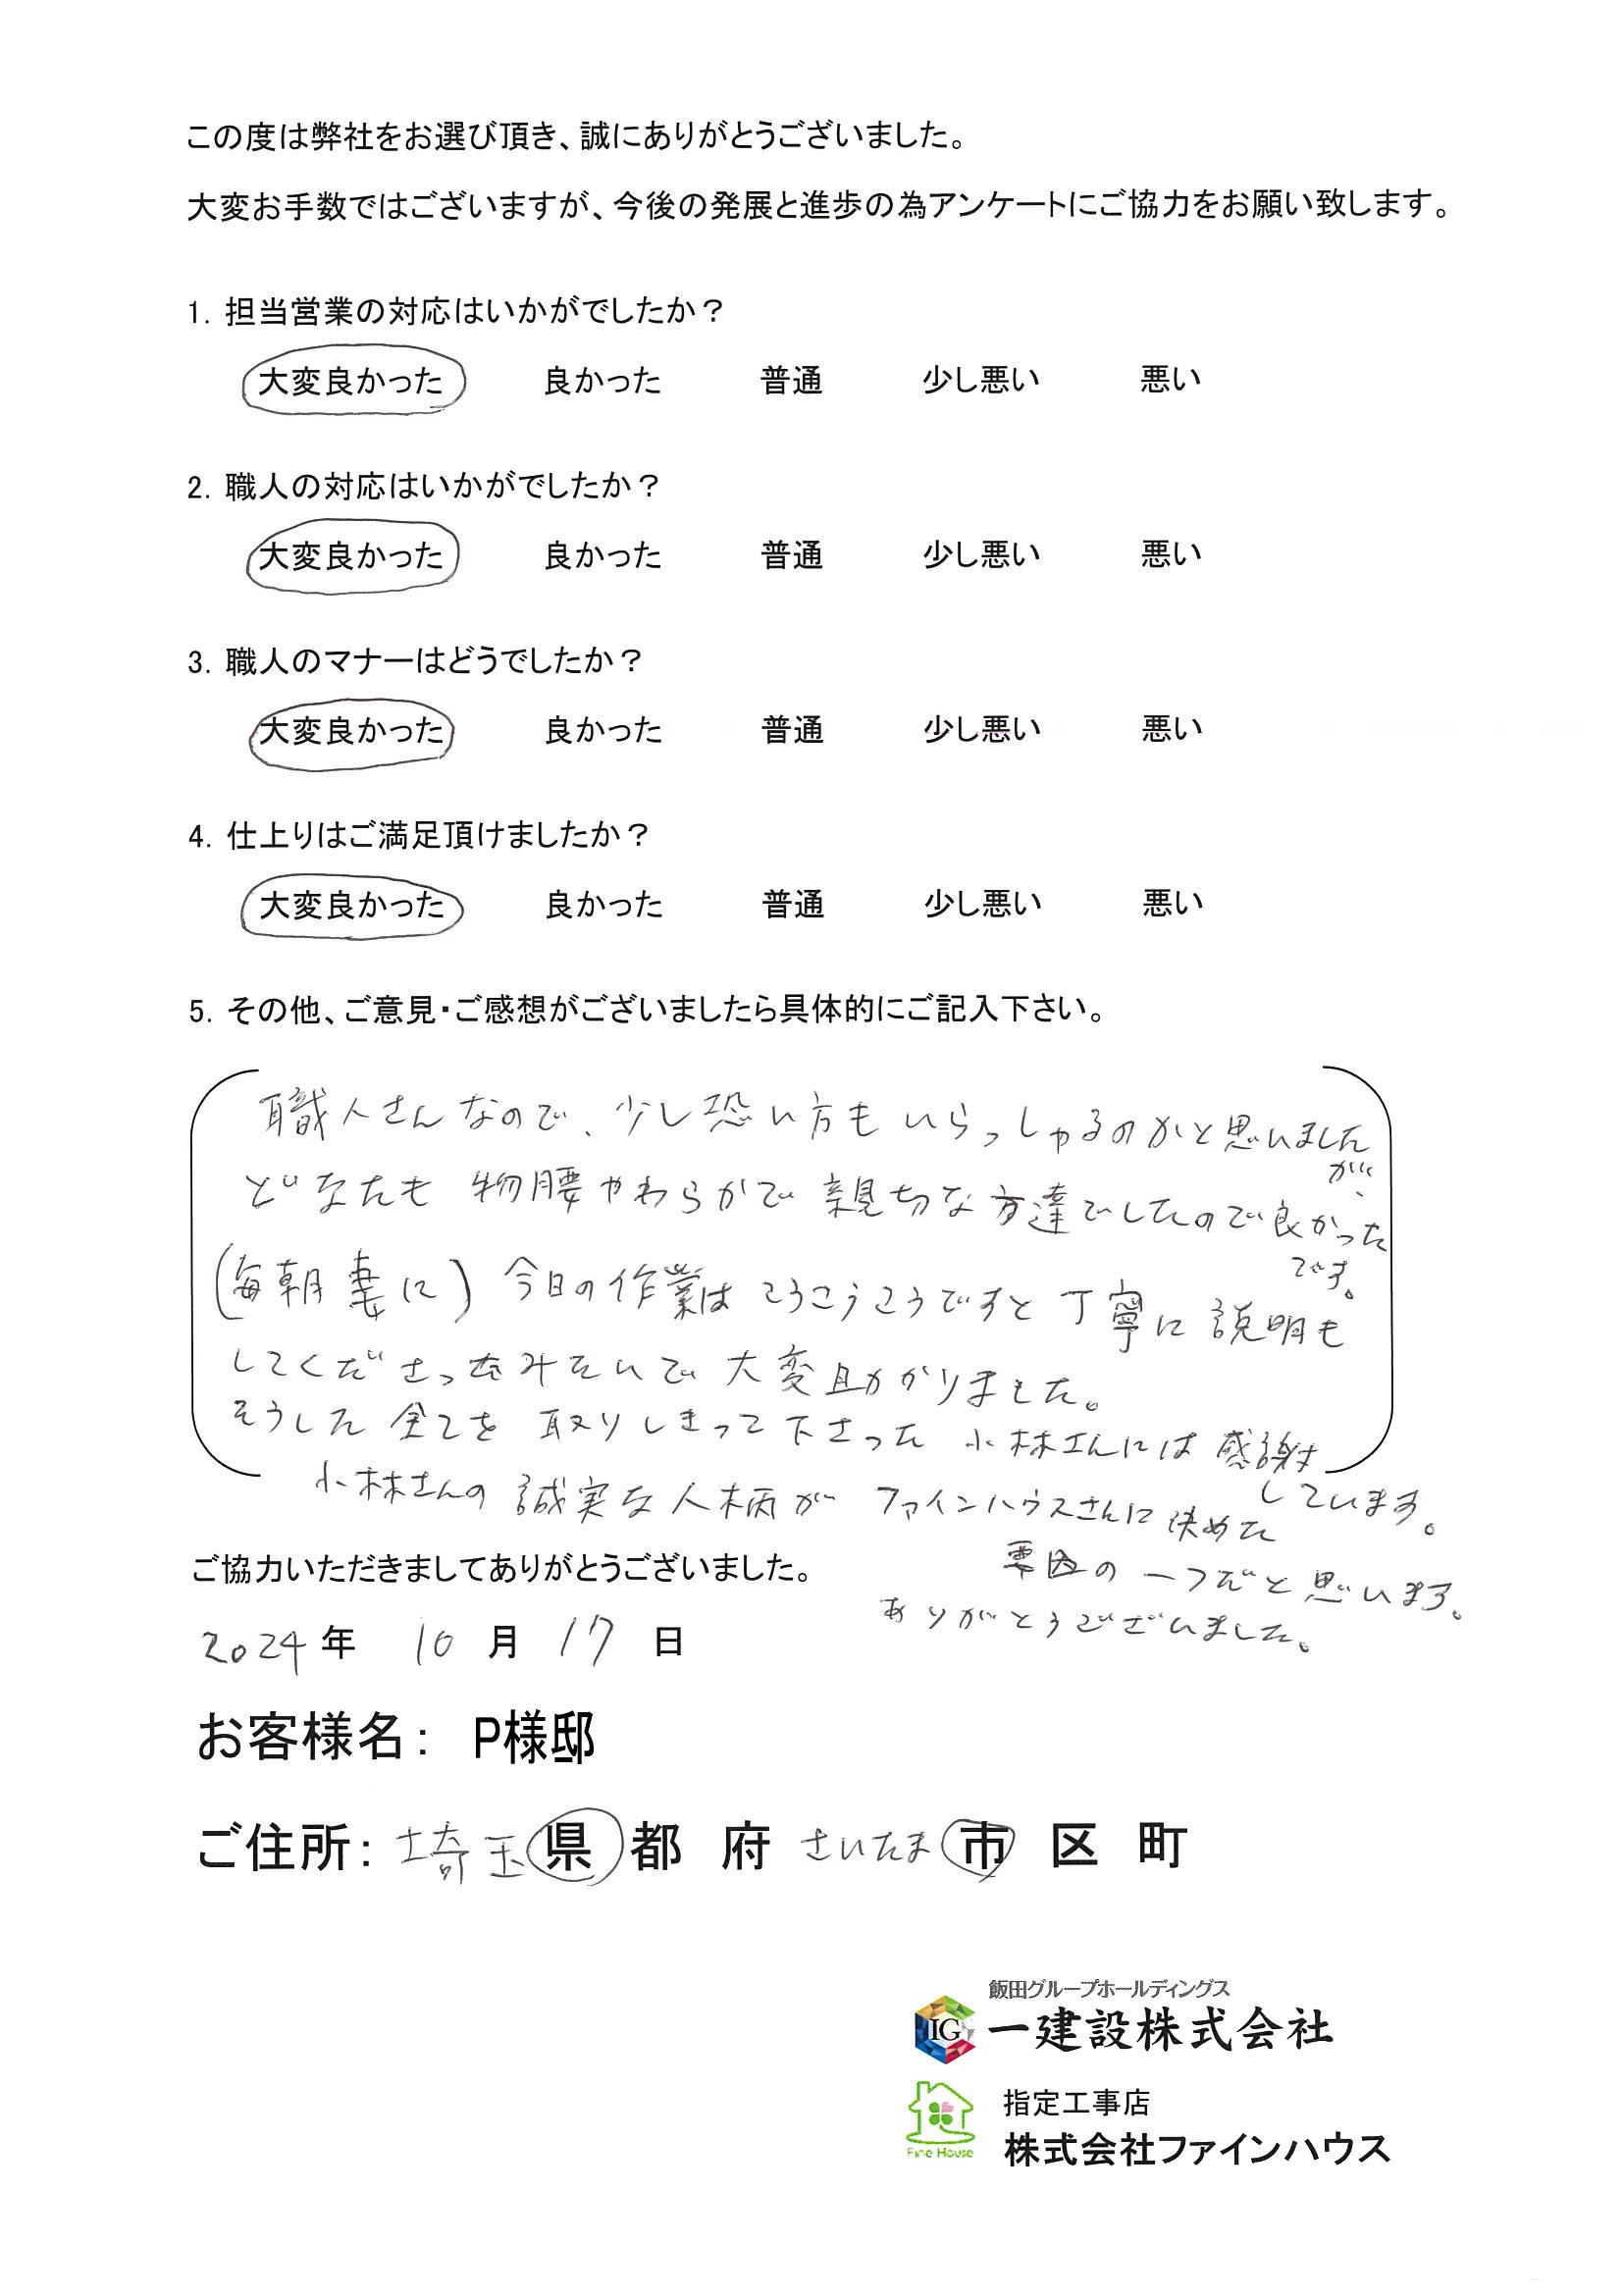 この度は弊社をお選び頂き、誠にありがとうございました。
大変お手数ではございますが、今後の発展と進歩の為アンケートにご協力をお願い致します。
1. 担当営業の対応はいかがでしたか？
大変良かった 良かった 普通 少し悪い 悪い
2. 職人の対応はいかがでしたか？
大変良かった 良かった 普通 少し悪い 悪い
3. 職人のマナーはどうでしたか？
大変良かった 良かった 普通 少し悪い 悪い
4. 仕上りはご満足頂けましたか？
大変良かった 良かった 普通 少し悪い 悪い
5. その他、ご意見・ご感想がございましたら具体的にご記入下さい。
職人さんなので、少し恐い方もいらっしゃるのかと思いました
が、
どなたも物腰やわらかで親切な方達でしたので良かった
です。
(毎朝妻に) 今日の作業はこうこうこうですと丁寧に説明も
してくださったみたいで大変助かりました。
そうした全てを取りしきって下さった小林さんには感謝
しています。
小林さんの誠実な人柄がファインハウスさんに決めた
要因の一つだと思います。
ありがとうございました。
ご協力いただきましてありがとうございました。
2024年 10月 17日
お客様名： P様邸
ご住所：埼玉県 都 府 さいたま市 区 町
飯田グループホールディングス
IG 一建設株式会社
指定工事店
Fine House 株式会社ファインハウス